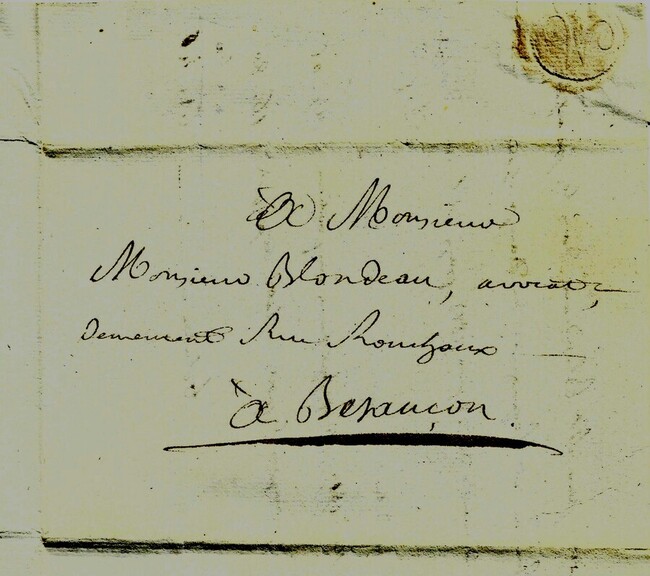 À Monsieur
Monsieur Blondeau, avocat,
demeurant Rue Ronchaux
à Besançon.